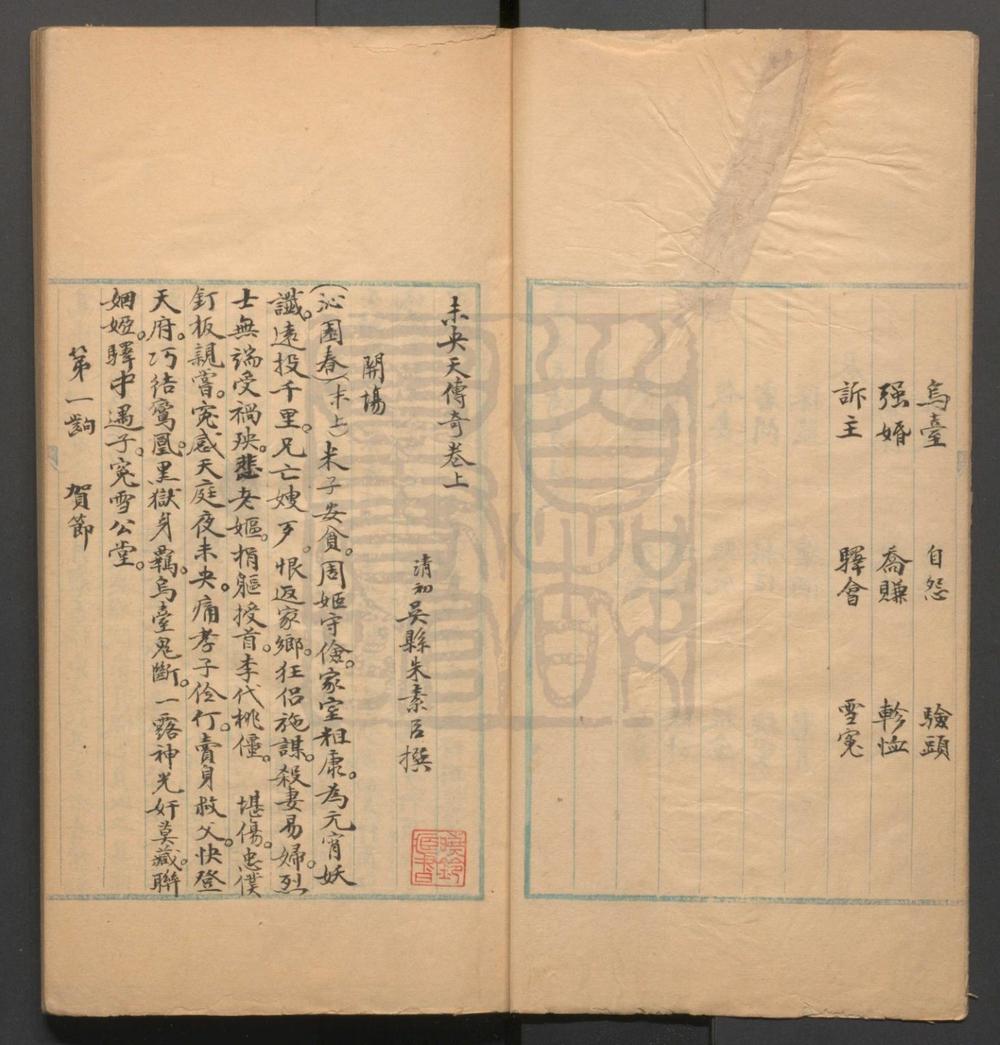 烏臺　自怨　驗頭
强婚　喬賺　軫恤
訴主　驛會　雪寃
未央天傳奇卷上
清初吳縣朱素臣撰
開場
(沁園春)(末上)米子安貧。周姬守儉。家室粗康。為元宵妖
讖。遠投千里。兄亡嫂歹。恨返家鄉。狂侣施謀。殺妻易婦。烈
士無端受禍殃。悲老嫗。捐軀授首。李代桃僵。　堪傷。忠僕
釘板親嘗。寃感天庭夜未央。痛孝子伶仃。賣身救父。快登
天府。巧結鸞凰。黑獄身羈。烏臺鬼斷。一露神光奸莫藏。聯
姻婭。驛中遇子。寃雪公堂。
第一齣　賀節